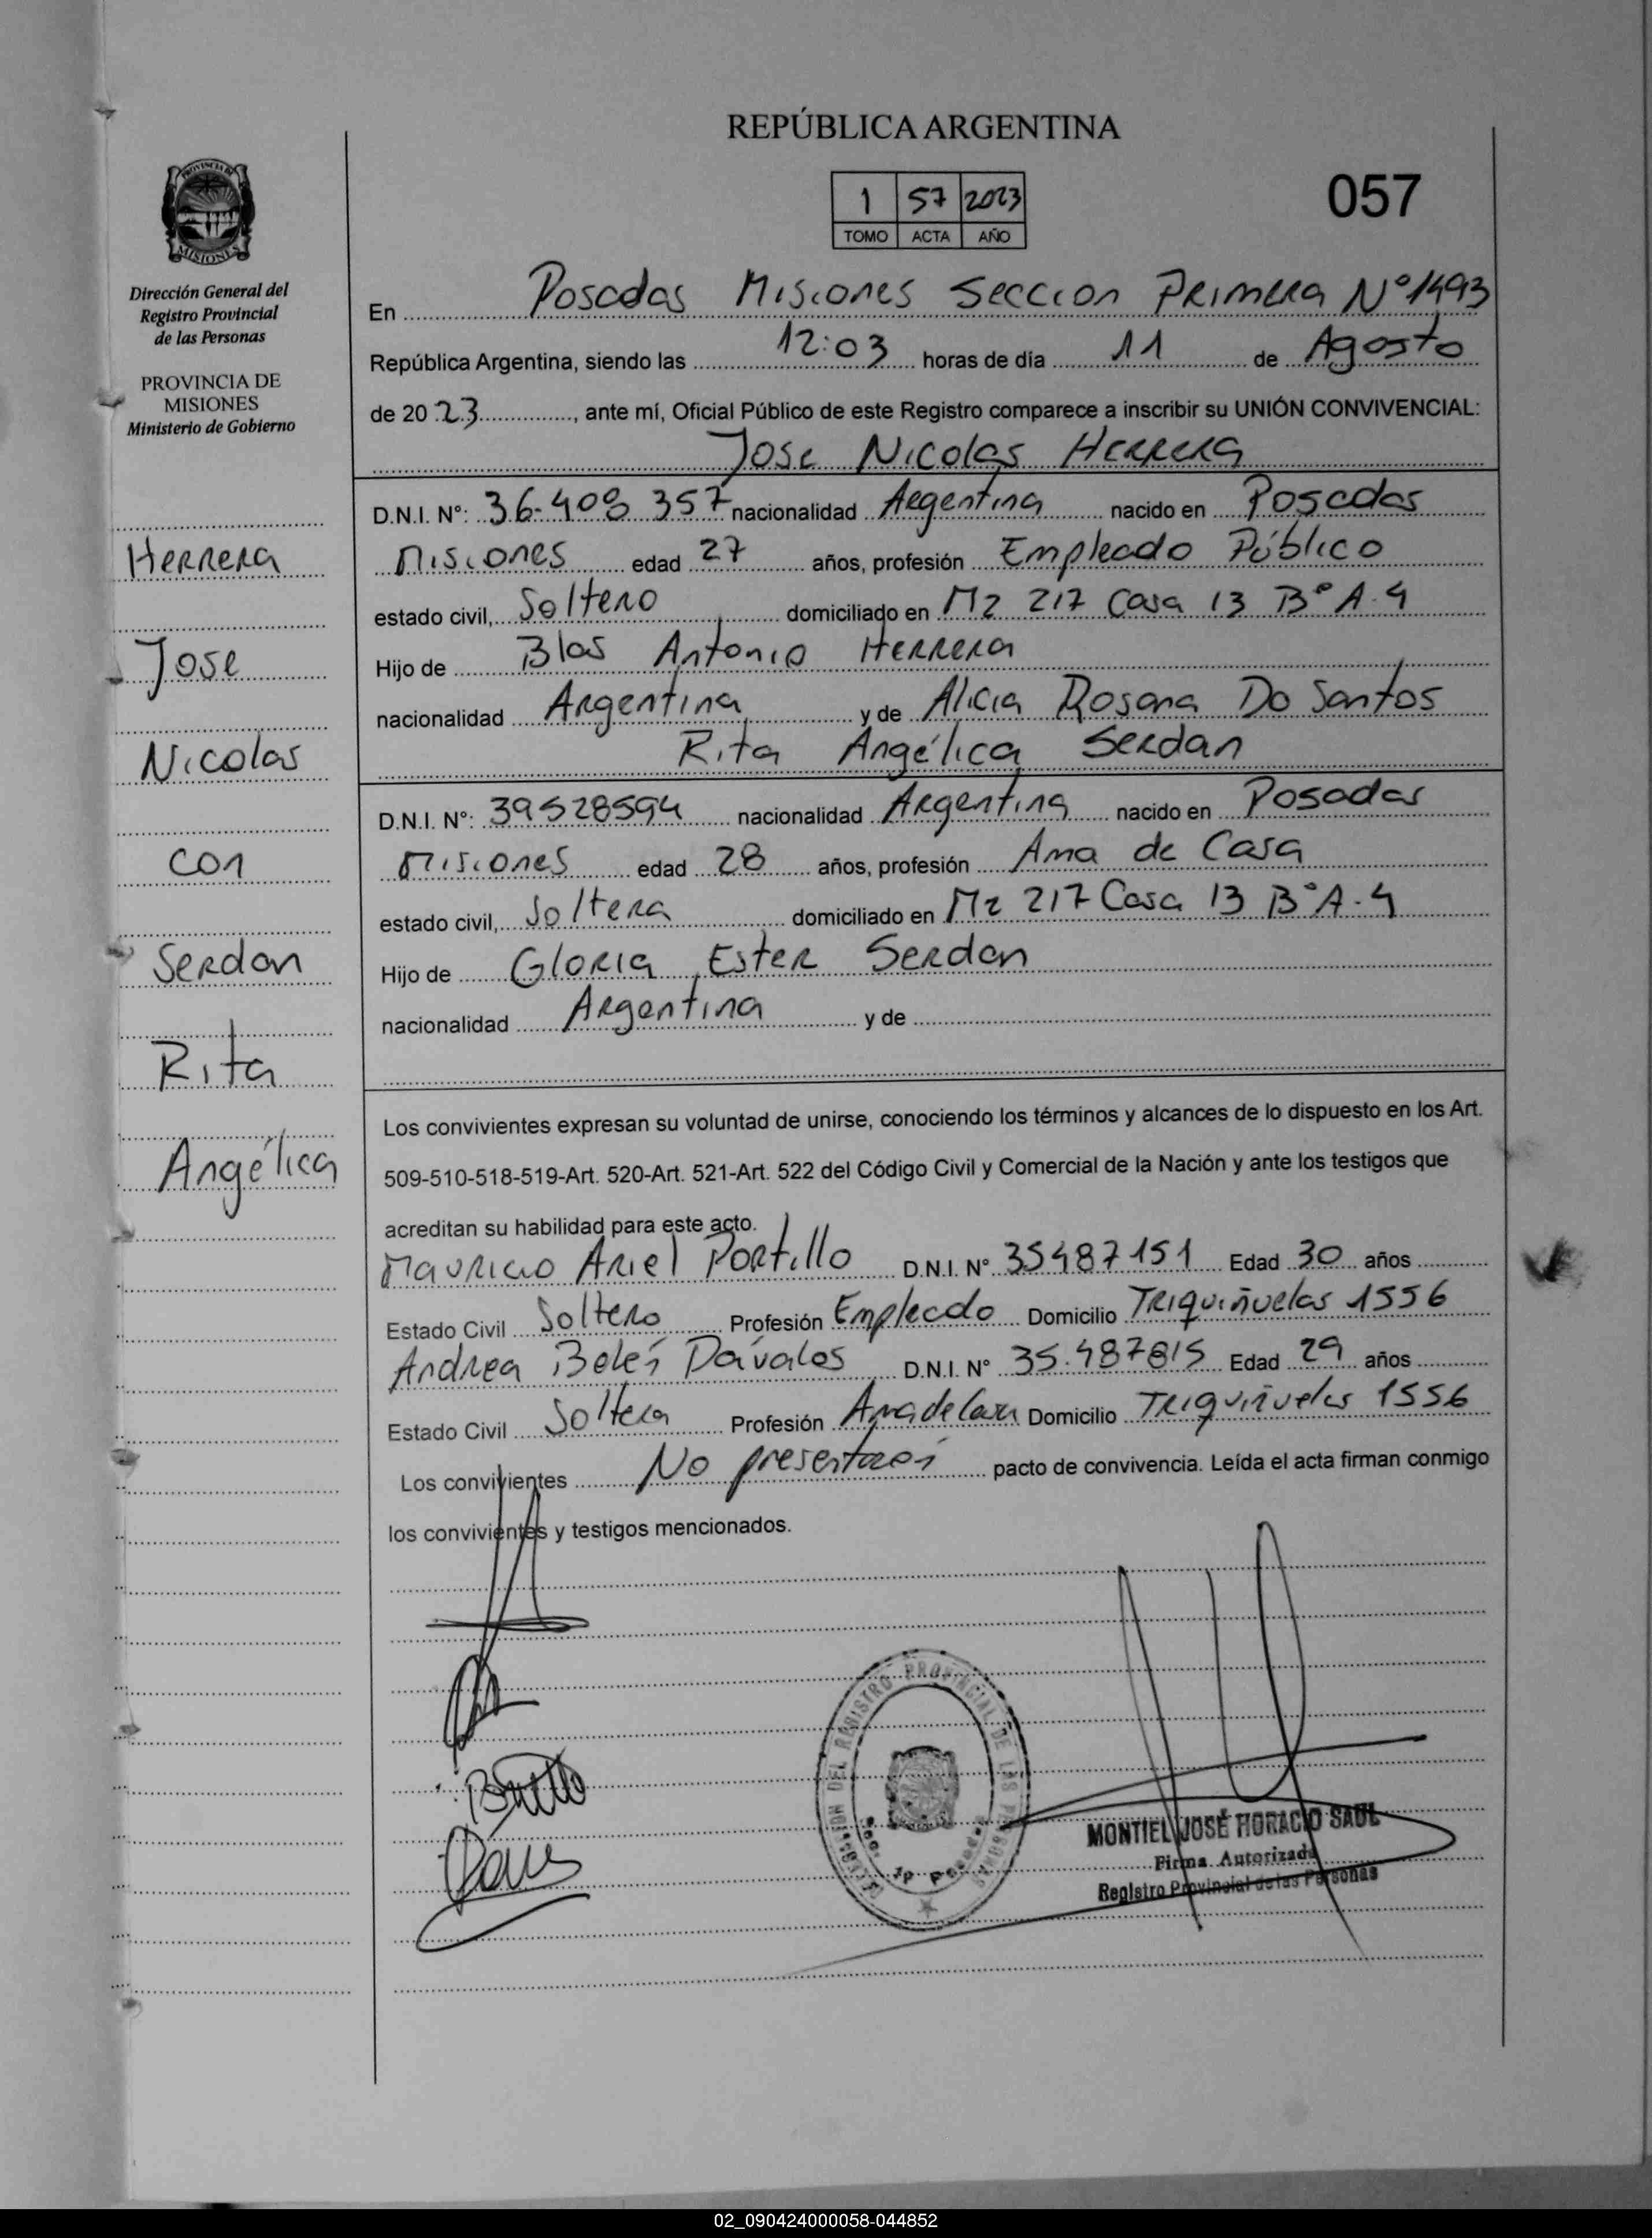 REPÚBLICA ARGENTINA
1 57 2023
TOMO ACTA AÑO
057
PROVINCIA DE
MISIONES
Dirección General del
Registro Provincial
de las Personas
PROVINCIA DE
MISIONES
Ministerio de Gobierno
Herrera
Jose
Nicolas
con
Serdan
Rita
Angélica
En Posadas Misiones Seccion Primera N° 1493
República Argentina, siendo las 12:03 horas de día 11 de Agosto
de 20 23, ante mí, Oficial Público de este Registro comparece a inscribir su UNIÓN CONVIVENCIAL:
Jose Nicolas Herrera
D.N.I. N°: 36.408 357 nacionalidad Argentina nacido en Posadas
Misiones edad 27 años, profesión Empleado Público
estado civil, Soltero domiciliado en Mz 217 Casa 13 B° A-4
Hijo de Blas Antonio Herrera
nacionalidad Argentina y de Alicia Rosana Do Santos
Rita Angélica Serdan
D.N.I. N°: 39528594 nacionalidad Argentina nacido en Posadas
Misiones edad 28 años, profesión Ama de Casa
estado civil, Soltera domiciliado en Mz 217 Casa 13 B° A-4
Hijo de Gloria Ester Serdan
nacionalidad Argentina y de
Los convivientes expresan su voluntad de unirse, conociendo los términos y alcances de lo dispuesto en los Art.
509-510-518-519-Art. 520-Art. 521-Art. 522 del Código Civil y Comercial de la Nación y ante los testigos que
acreditan su habilidad para este acto.
Mauricio Ariel Portillo D.N.I. N° 35487151 Edad 30 años
Estado Civil Soltero Profesión Empleado Domicilio Triquiñuelas 1556
Andrea Belén Dávalos D.N.I. N° 35.487815 Edad 29 años
Estado Civil Soltera Profesión Ama de Casa Domicilio Triquiñuelas 1556
Los convivientes No presentaron pacto de convivencia. Leída el acta firman conmigo
los convivientes y testigos mencionados.
REGISTRO PROVINCIAL DE LAS PERSONAS
MONTIEL JOSÉ HORACIO SAUL
Firma Autorizada
Registro Provincial de las Personas
02_090424000058-044852